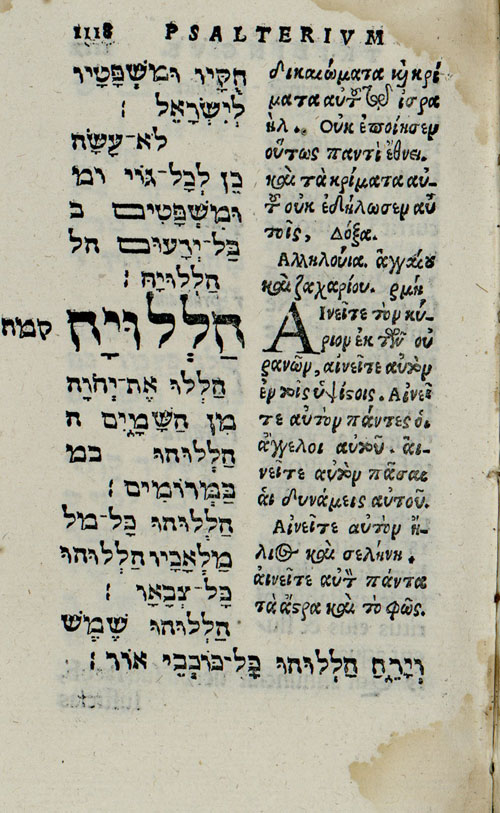 1118 PSALTERIVM
חֻקָּיו וּמִשְׁפָּטָיו
לְיִשְׂרָאֵל ׃
לֹא־עָשָׂה
כֵן לְכָל־גּוֹי ומ
וּמִשְׁפָּטִים ב
בַּל־יְדָעוּם הל
הַלְלוּיָהּ ׃
קמח הַלְלוּיָהּ
הַלְלוּ אֶת־יְהוָֹה
מִן הַשָּׁמַיִם ה
הַלְלוּהוּ במ
בַּמְּרוֹמִים ׃
הַלְלוּהוּ כָּל־מל
מַלְאָכָיו הַלְלוּהוּ
כָּל־צְבָאָו ׃
הַלְלוּהוּ שֶׁמֶשׁ
וְיָרֵחַ הַלְלוּהוּ כָּל־כּוֹכְבֵי אוֹר ׃
δικαιώματα καὶ κρί
ματα αὐτοῦ τῷ ἰσρα
ήλ. Οὐκ ἐποίησεν
οὕτως παντὶ ἔθνει.
καὶ τὰ κρίματα αὐ-
τοῦ οὐκ ἐδήλωσεν αὐ
τοῖς, Δόξα.
Αλληλούϊα. ἀγγαίου
καὶ ζαχαρίου. ρμή
Αἰνεῖτε τὸν κύ-
ριον ἐκ τῶν οὐ
ρανῶν, αἰνεῖτε αὐτὸν
ἐν τοῖς ὑψίστοις. Αἰνεῖ
τε αὐτὸν πάντες ὁι
ἄγγελοι αὐτοῦ. αἰ-
νεῖτε αὐτὸν πᾶσαι
ἁι δυνάμεις αὐτοῦ.
Αἰνεῖτε αὐτὸν ἥ-
λιος καὶ σελήνη.
αἰνεῖτε αὐτὸν πάντα
τὰ ἄστρα καὶ τὸ φῶς.